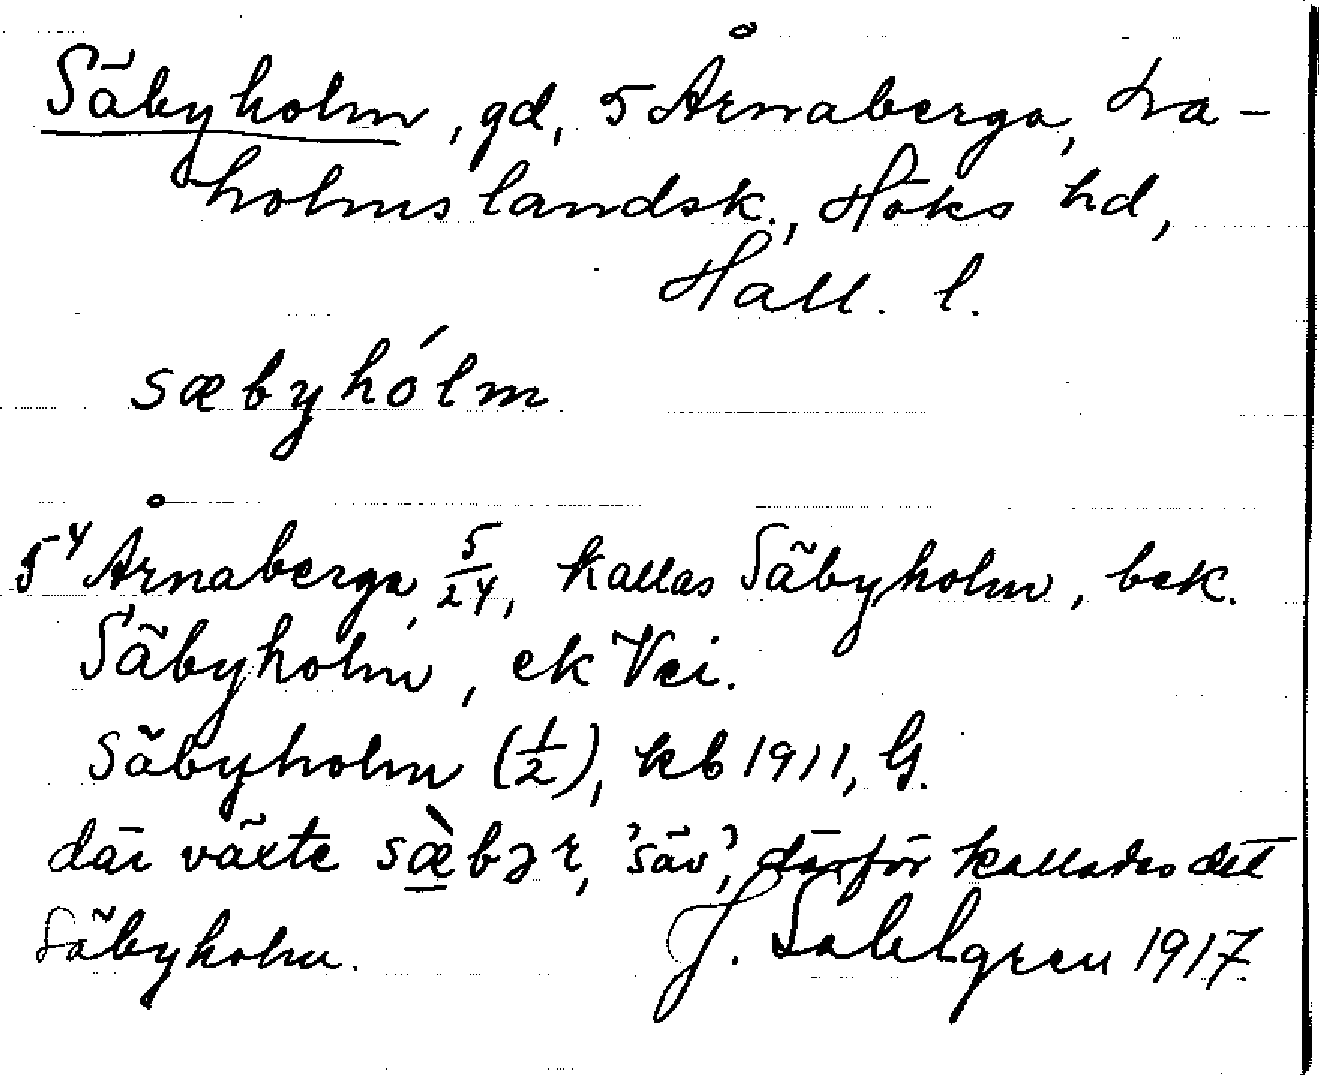 Säbyholm, gd, 5 Årnaberga, La-
holms landsk., Höks hd,
Hall. l.
sæbyhólm
5⁴ Årnaberga, 5/24, kallas Säbyholm, bek.
Säbyholm, ek Vei.
Säbyholm (1/2), kb 1911, G.
där växte sæ̀bər, 'säv', därför kallades det
Säbyholm. J. Sahlgren 1917